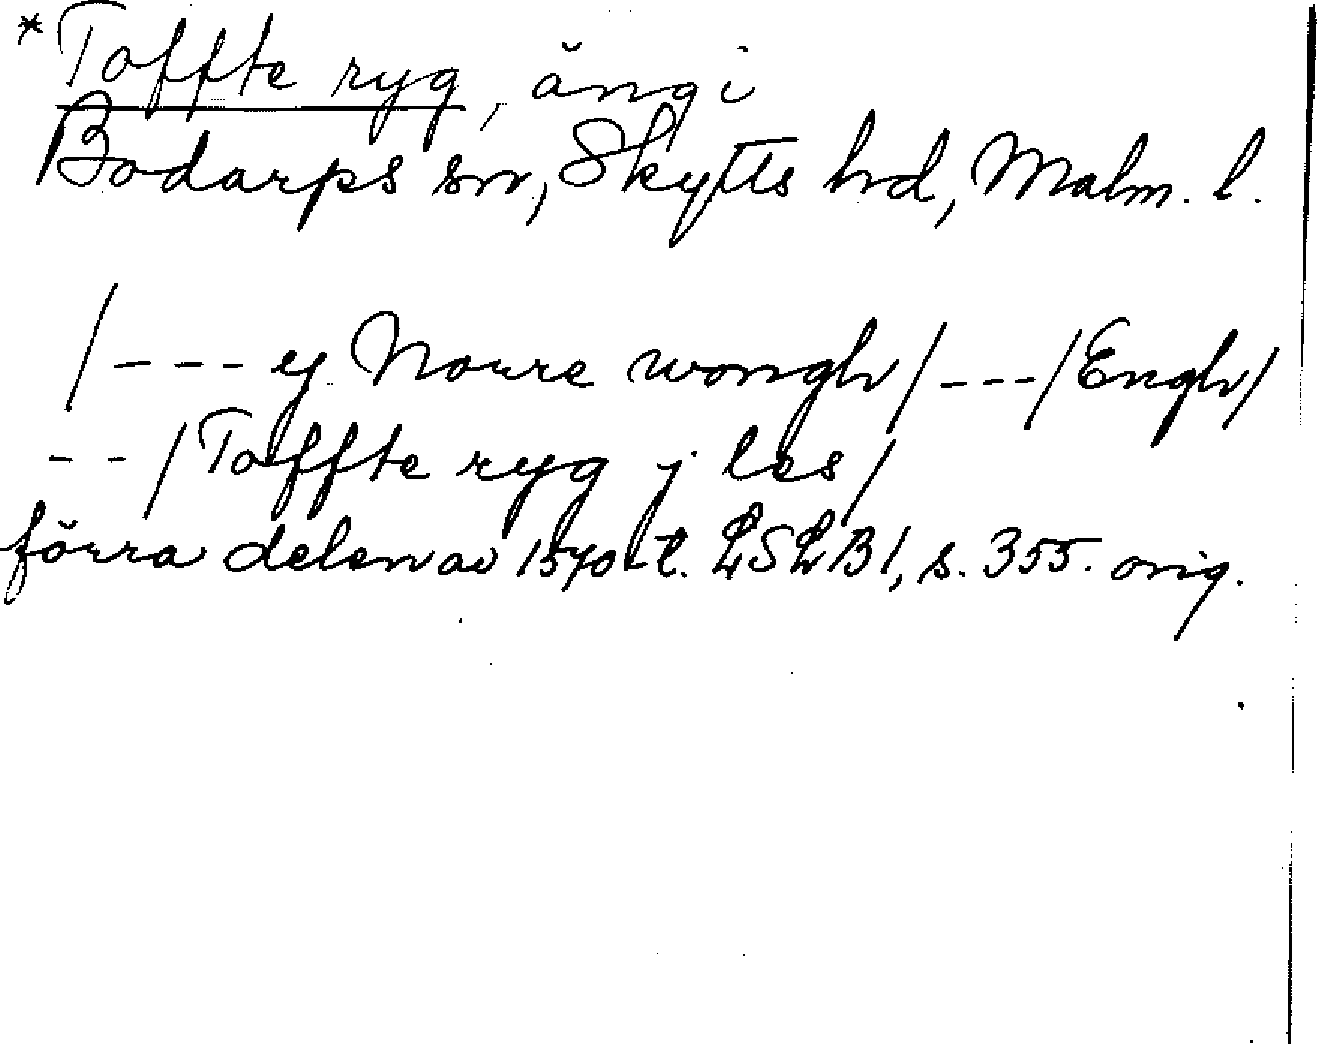 *Toffte ryg, äng i
Bodarps sn, Skytts hd, Malm. l.
/--- ej Norre wongh/---/Engh/
--/Toffte ryg j les/
förra delen av 1570-t. LSLB1, s. 355. orig.